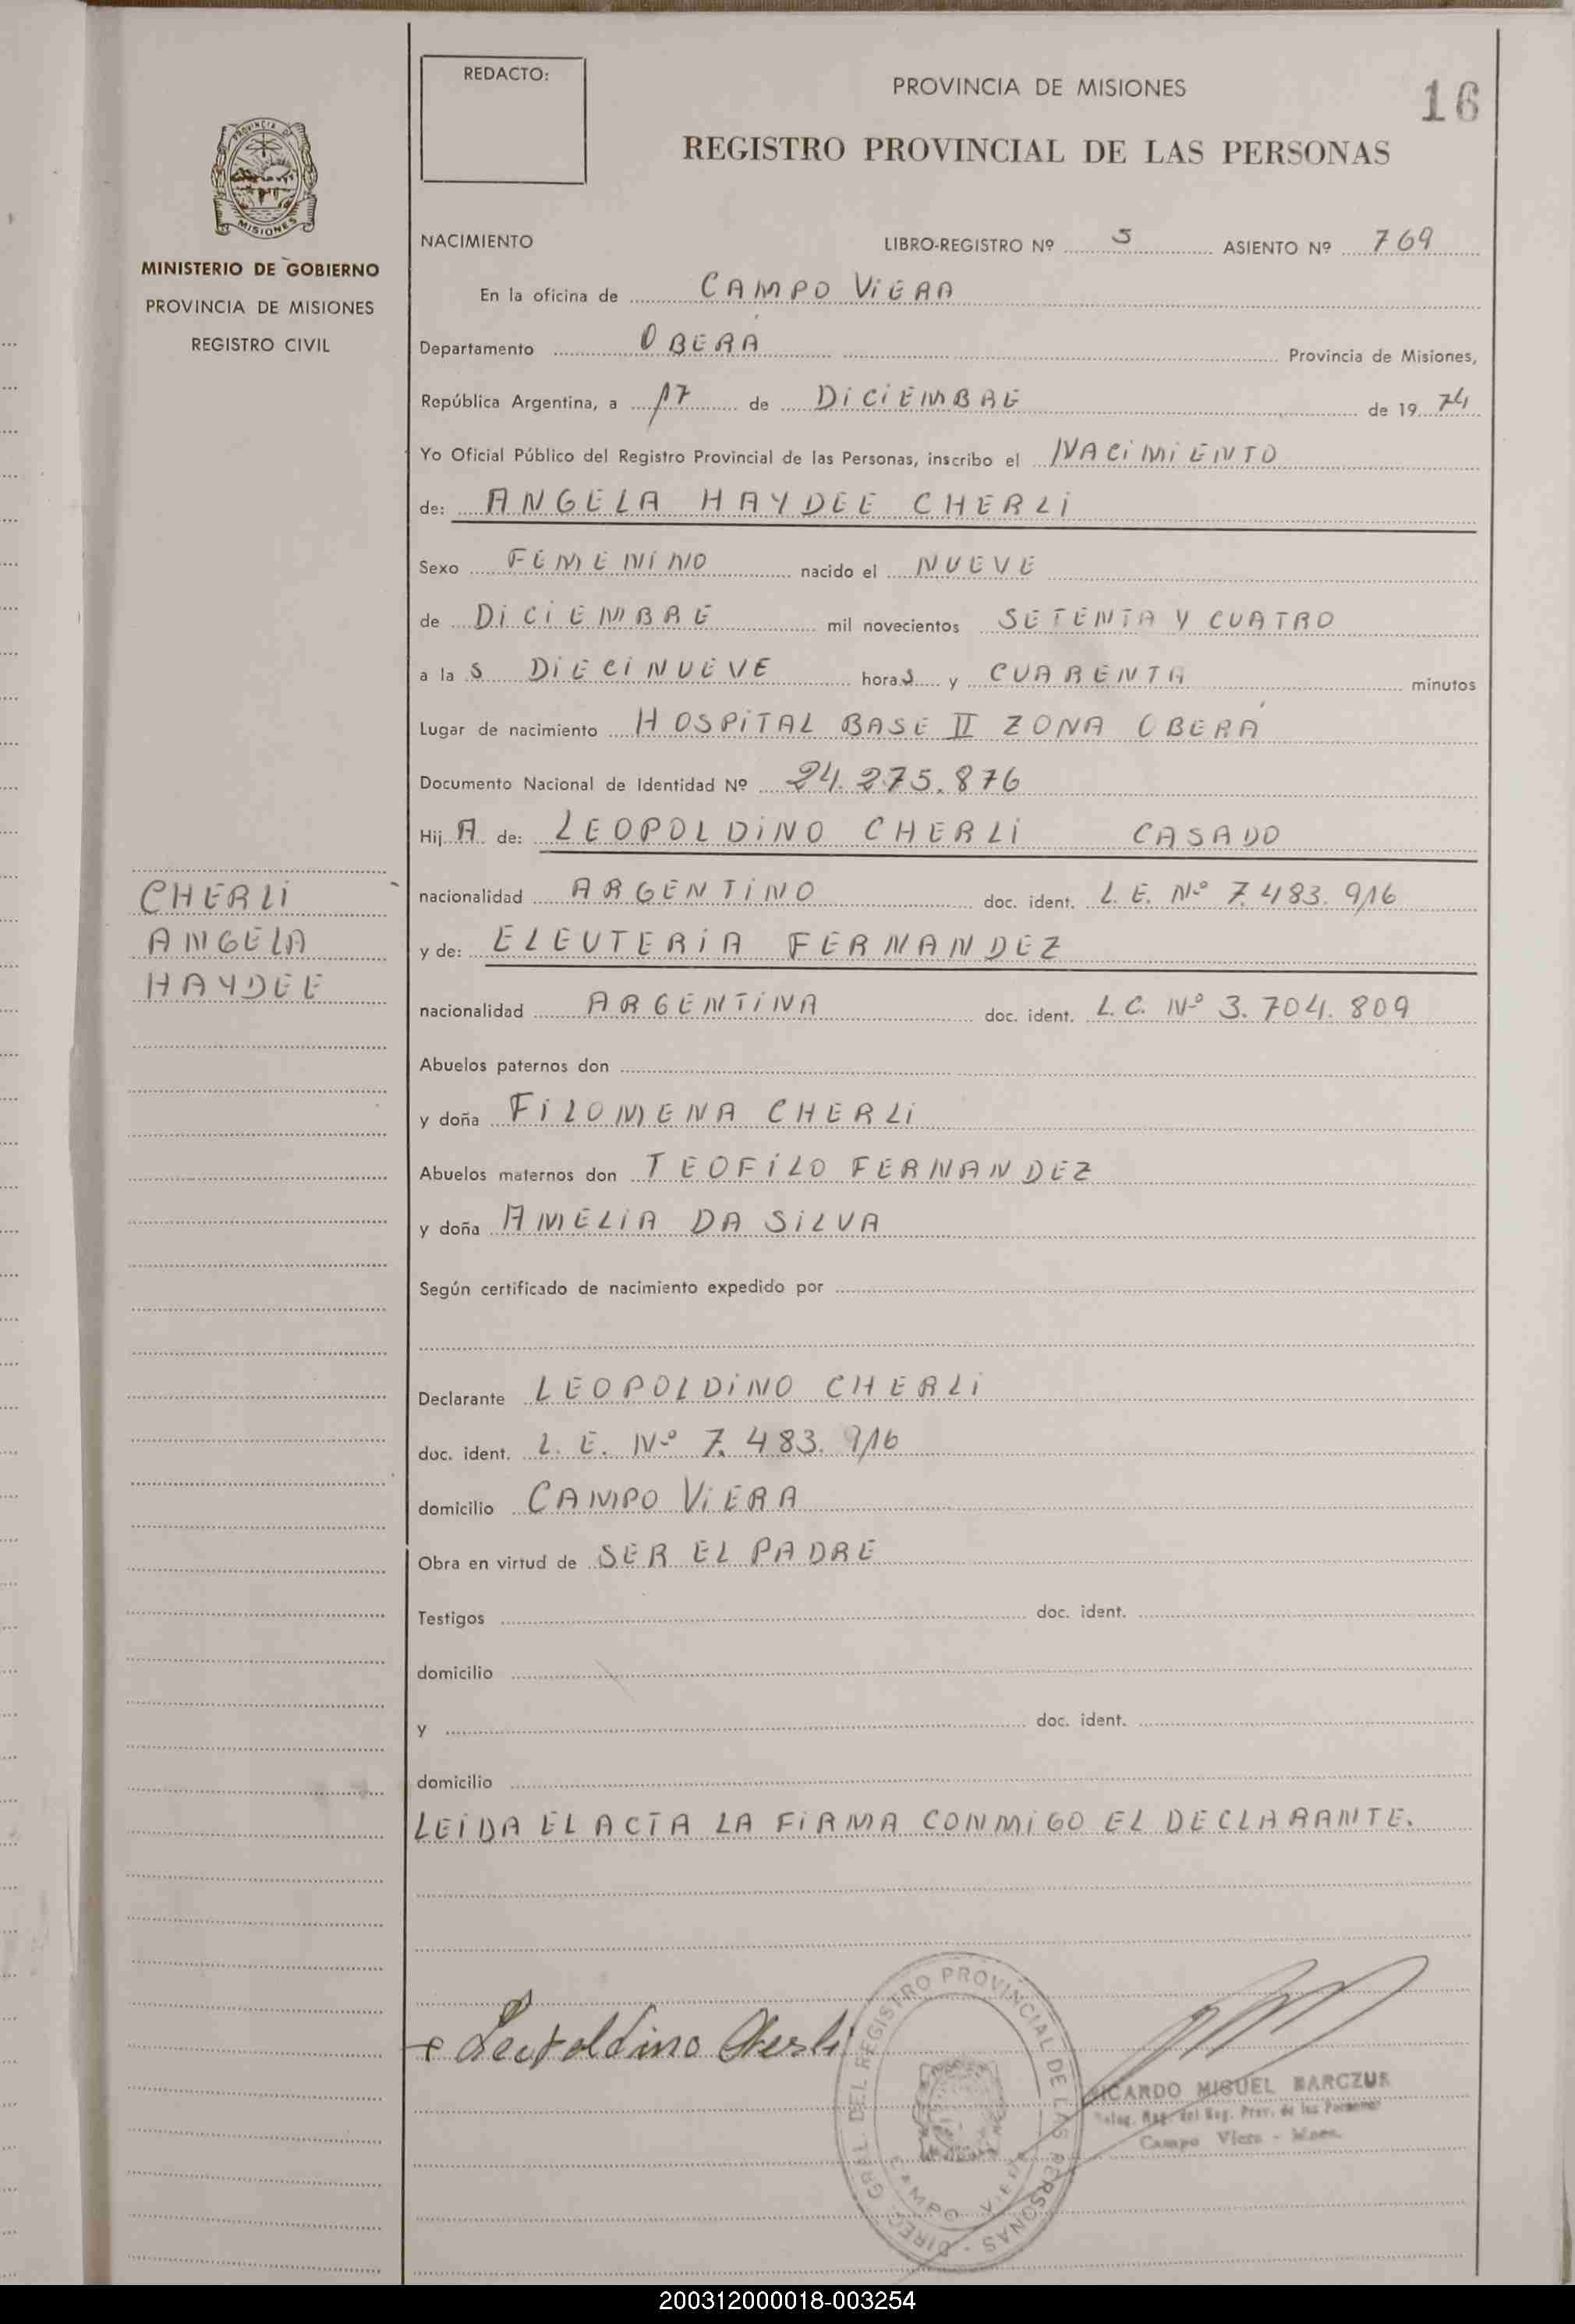 REDACTO:
PROVINCIA DE MISIONES
16
REGISTRO PROVINCIAL DE LAS PERSONAS
PROVINCIA DE
MISIONES
MINISTERIO DE GOBIERNO
PROVINCIA DE MISIONES
REGISTRO CIVIL
NACIMIENTO LIBRO-REGISTRO Nº 5 ASIENTO Nº 769
En la oficina de CAMPO VIERA
Departamento OBERÁ Provincia de Misiones,
República Argentina, a 17 de DICIEMBRE de 1974
Yo Oficial Público del Registro Provincial de las Personas, inscribo el NACIMIENTO
de: ANGELA HAYDEE CHERLI
Sexo FEMENINO nacido el NUEVE
de DICIEMBRE mil novecientos SETENTA Y CUATRO
a la S DIECINUEVE horaS y CUARENTA minutos
Lugar de nacimiento HOSPITAL BASE II ZONA OBERÁ
Documento Nacional de Identidad Nº 24.275.876
Hij A de: LEOPOLDINO CHERLI CASADO
nacionalidad ARGENTINO doc. ident. L.E. Nº 7.483.916
y de: ELEUTERIA FERNANDEZ
nacionalidad ARGENTINA doc. ident. L.C. Nº 3.704.809
CHERLI
ANGELA
HAYDEE
Abuelos paternos don
y doña FILOMENA CHERLI
Abuelos maternos don TEOFILO FERNANDEZ
y doña AMELIA DA SILVA
Según certificado de nacimiento expedido por
Declarante LEOPOLDINO CHERLI
doc. ident. L.E. Nº 7.483.916
domicilio CAMPO VIERA
Obra en virtud de SER EL PADRE
Testigos doc. ident.
domicilio
y doc. ident.
domicilio
LEIDA EL ACTA LA FIRMA CONMIGO EL DECLARANTE.
Leopoldino Cherli
DIREC. GRAL. DEL REGISTRO PROVINCIAL DE LAS PERSONAS -
CAMPO VIERA
RICARDO MIGUEL BARCZUK
del Reg. Prov. de las Personas
Campo Viera - Mnes.
200312000018-003254